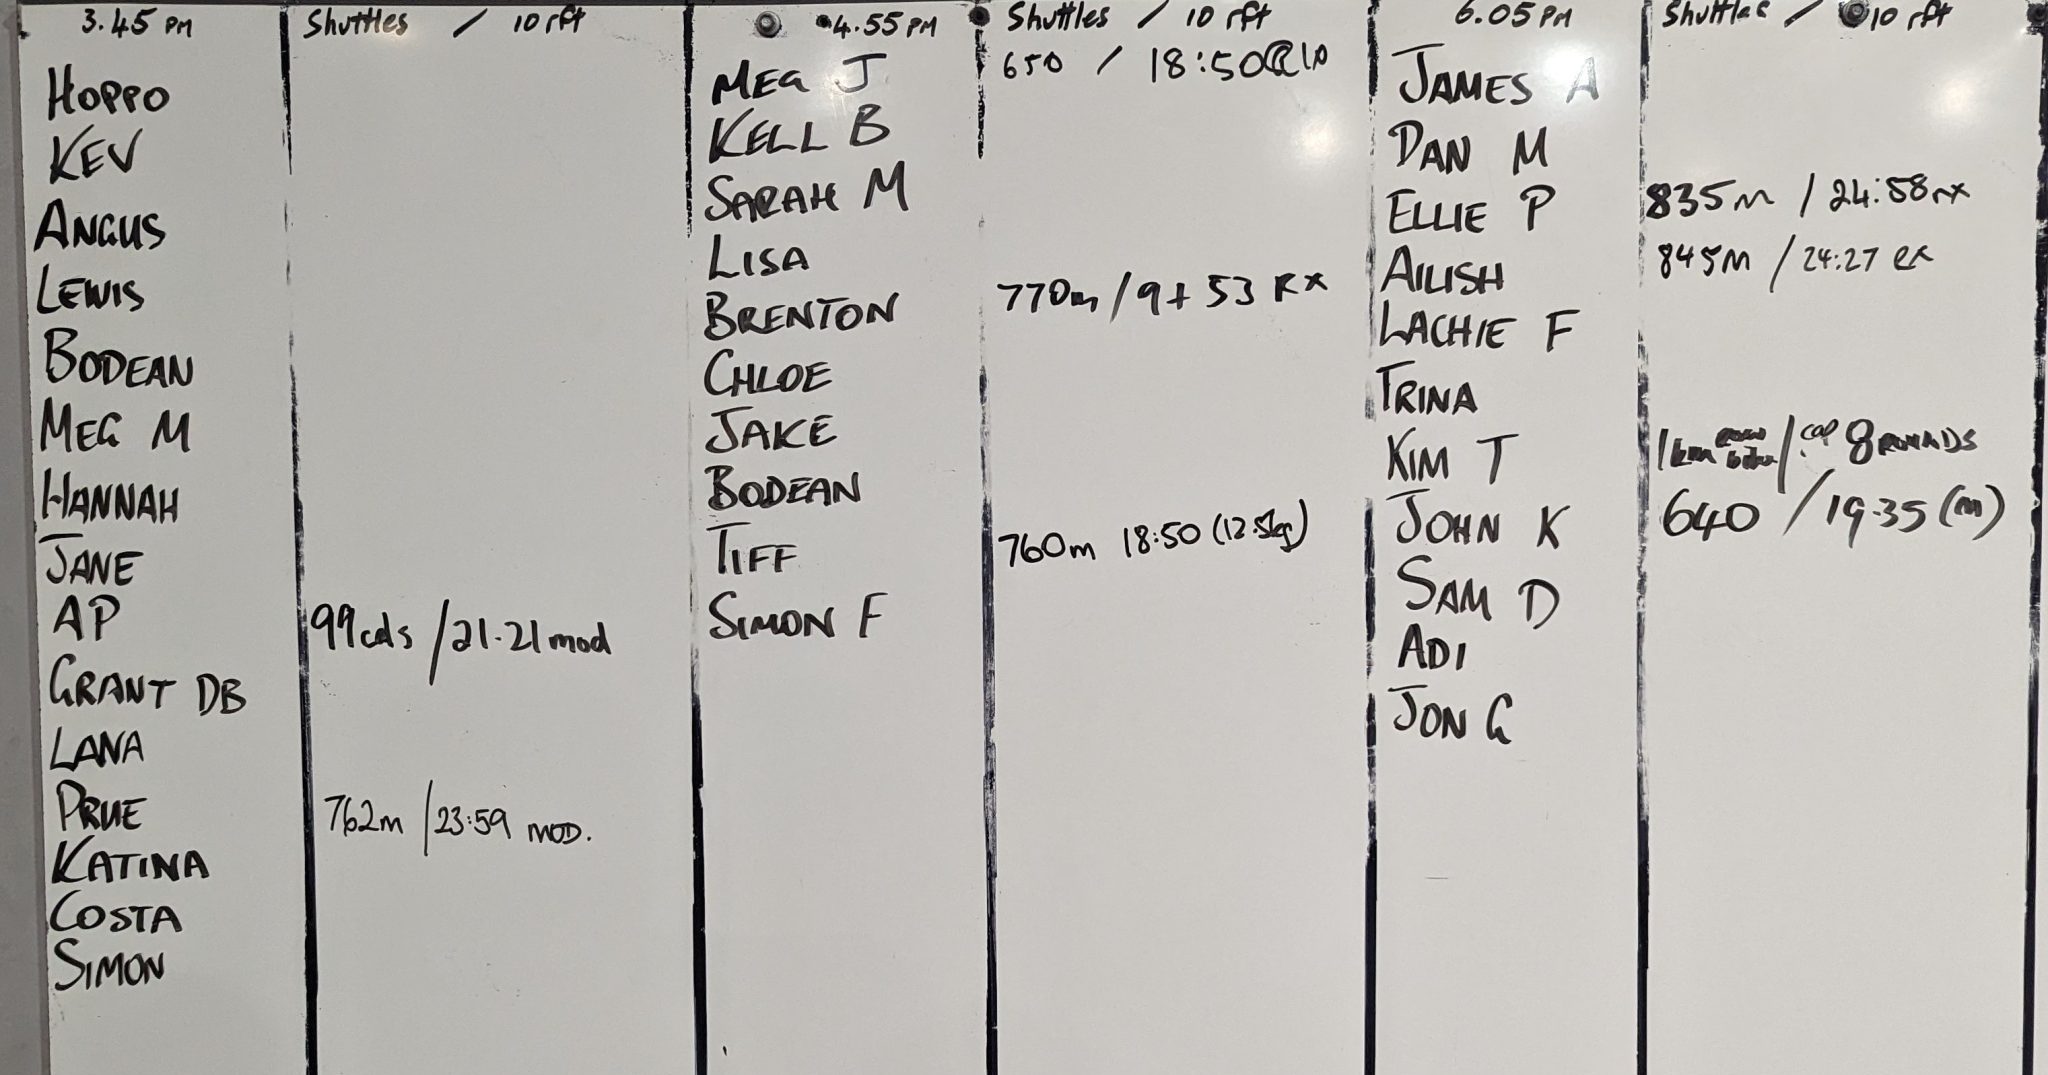 3.45 PM Shuttles / 10 rft
HOPPO
KEV
ANGUS
LEWIS
BODEAN
MEG M
HANNAH
JANE
AP 99cals / 21.21 mod
GRANT DB
LANA
PRUE 762m / 23:59 MOD.
KATINA
COSTA
SIMON
4.55 PM Shuttles / 10 rft
MEG J 650 / 18:50
KELL B
SARAH M
LISA
BRENTON 770m / 9 + 53 RX
CHLOE
JAKE
BODEAN
TIFF 760m 18:50 (12.5kg)
SIMON F
6.05 PM Shuttles / 10 rft
JAMES A
DAN M
ELLIE P 835m / 24:58 rx
AILISH 845m / 24:27 RX
LACHIE F
TRINA
KIM T 1km / cap 8 ROUNDS
JOHN K 640 / 19.35 (m)
SAM D
ADI
JON G